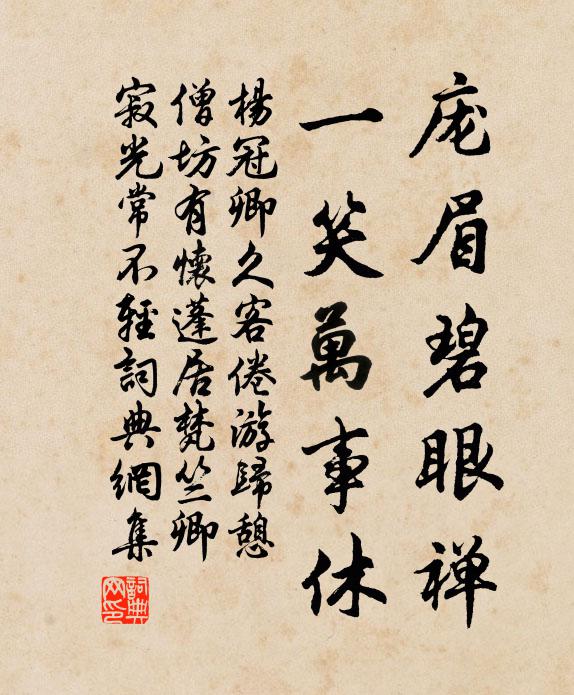 庬眉碧眼禅
一笑萬事休
楊冠卿久客倦游歸憩
僧坊有懷蓬居梵竺卿
寂光常不輕詞典網集
詞典
网印